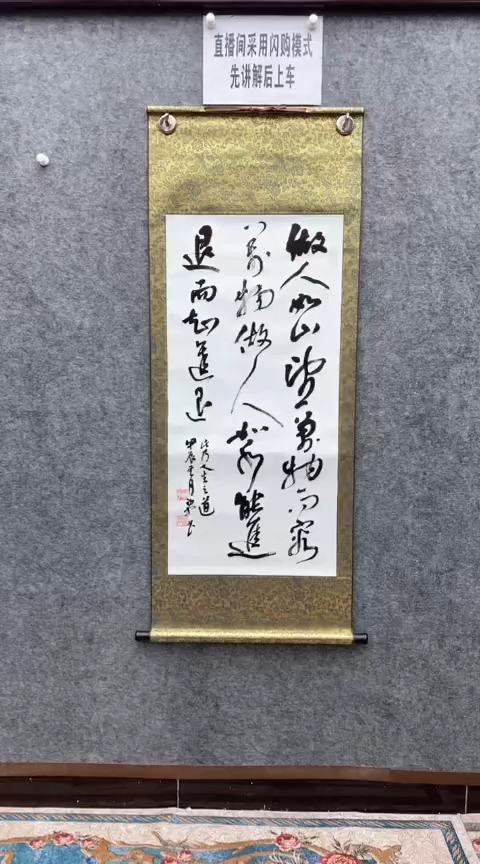 直播间采用闪购模式
先讲解后上车
做人如山望萬物而容
萬物做人似水能進
退而知進退
此乃人生之道
甲辰